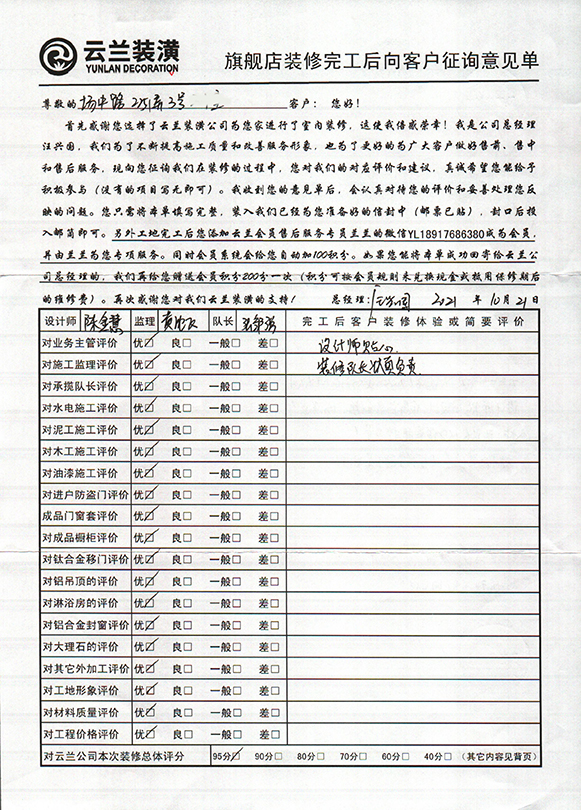 云兰装潢
YUNLAN DECORATION
旗舰店装修完工后向客户征询意见单
尊敬的 客户：您好！
首先感谢您选择了云兰装潢公司为您家进行了室内装修，这使我倍感荣幸！我是公司总经理
汪兴国，我们为了不断提高施工质量和改善服务形象，也为了更好的为广大客户做好售前、售中
和售后服务，现向您征询我们在装修的过程中，您对我们的对应评价和建议，真诚希望您能给予
积极参与（没有的项目写无即可）。我收到您的意见单后，会认真对待您的评价和妥善处理您反
映的问题。您只需将本单填写完整，装入我们已经为您准备好的信封中（邮票已贴），封口后投
入邮筒即可。另外工地完工后您添加云兰会员售后服务专员兰兰的微信YL18917686380成为会员，
并由兰兰为您专项服务。同时会员系统会给您自动加100积分。如果您能将本单成功回寄给云兰公
司总经理的，我们再给您赠送会员积分200分一次（积分可按会员规则来兑换现金或抵用保修期后
的维修费）。再次感谢您对我们云兰装潢的支持！ 总经理： 2021 年 10月21日
设计师 监理 队长 完工后客户装修体验或简要评价
对业务主管评价 优☑ 良□ 一般□ 差□ 设计师贴心
对施工监理评价 优☑ 良□ 一般□ 差□ 装修队长认真负责
对承揽队长评价 优☑ 良□ 一般□ 差□
对水电施工评价 优☑ 良□ 一般□ 差□
对泥工施工评价 优☑ 良□ 一般□ 差□
对木工施工评价 优☑ 良□ 一般□ 差□
对油漆施工评价 优☑ 良□ 一般□ 差□
对进户防盗门评价 优☑ 良□ 一般□ 差□
成品门窗套评价 优☑ 良□ 一般□ 差□
对成品橱柜评价 优☑ 良□ 一般□ 差□
对钛合金移门评价 优☑ 良□ 一般□ 差□
对铝吊顶的评价 优☑ 良□ 一般□ 差□
对淋浴房的评价 优☑ 良□ 一般□ 差□
对铝合金封窗评价 优☑ 良□ 一般□ 差□
对大理石的评价 优☑ 良□ 一般□ 差□
对其它外加工评价 优☑ 良□ 一般□ 差□
对工地形象评价 优☑ 良□ 一般□ 差□
对材料质量评价 优☑ 良□ 一般□ 差□
对工程价格评价 优☑ 良□ 一般□ 差□
对云兰公司本次装修总体评分 95分☑ 90分□ 80分□ 70分□ 60分□ 40分□ （其它内容见背页）